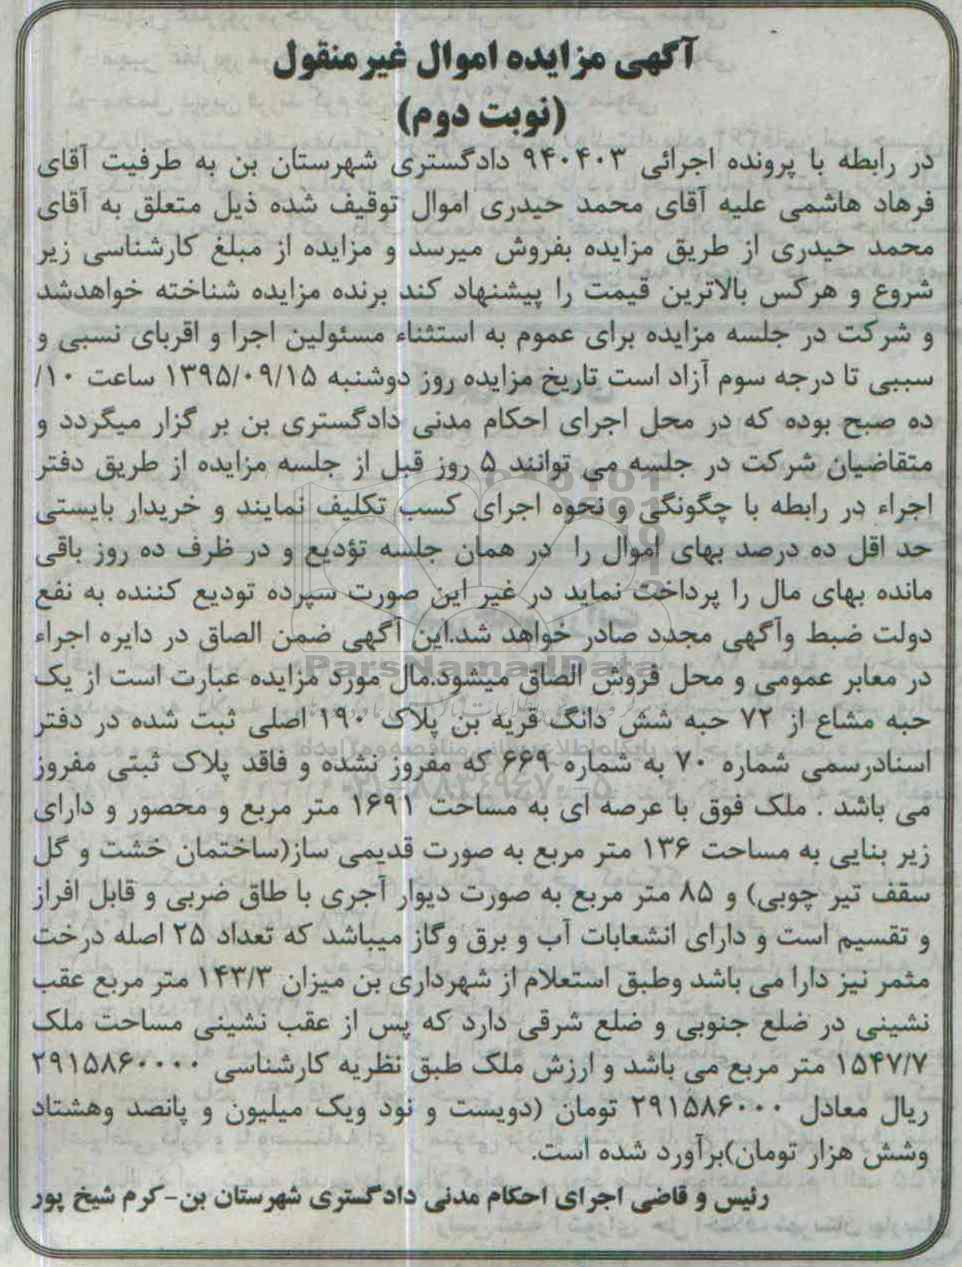 آگهی مزایده اموال غیرمنقول
(نوبت دوم)
در رابطه با پرونده اجرائی ۹۴۰۴۰۳ دادگستری شهرستان بن به طرفیت آقای
فرهاد هاشمی علیه آقای محمد حیدری اموال توقیف شده ذیل متعلق به آقای
محمد حیدری از طریق مزایده بفروش میرسد و مزایده از مبلغ کارشناسی زیر
شروع و هرکس بالاترین قیمت را پیشنهاد کند برنده مزایده شناخته خواهدشد
و شرکت در جلسه مزایده برای عموم به استثناء مسئولین اجرا و اقربای نسبی و
سببی تا درجه سوم آزاد است تاریخ مزایده روز دوشنبه ۱۳۹۵/۰۹/۱۵ ساعت ۱۰/
ده صبح بوده که در محل اجرای احکام مدنی دادگستری بن بر گزار میگردد و
متقاضیان شرکت در جلسه می توانند ۵ روز قبل از جلسه مزایده از طریق دفتر
اجراء در رابطه با چگونگی و نحوه اجرای کسب تکلیف نمایند و خریدار بایستی
حد اقل ده درصد بهای اموال را در همان جلسه تؤدیع و در ظرف ده روز باقی
مانده بهای مال را پرداخت نماید در غیر این صورت سپرده تودیع کننده به نفع
دولت ضبط وآگهی مجدد صادر خواهد شد.این آگهی ضمن الصاق در دایره اجراء
ParsNamadData
در معابر عمومی و محل فروش الصاق میشود.مال مورد مزایده عبارت است از یک
حبه مشاع از ۷۲ حبه شش دانگ قریه بن پلاک ۱۹۰ اصلی ثبت شده در دفتر
اسنادرسمی شماره ۷۰ به شماره ۶۶۹ که مفروز نشده و فاقد پلاک ثبتی مفروز
می باشد . ملک فوق با عرصه ای به مساحت ۱۶۹۱ متر مربع و محصور و دارای
زیر بنایی به مساحت ۱۳۶ متر مربع به صورت قدیمی ساز(ساختمان خشت و گل
سقف تیر چوبی) و ۸۵ متر مربع به صورت دیوار آجری با طاق ضربی و قابل افراز
و تقسیم است و دارای انشعابات آب و برق وگاز میباشد که تعداد ۲۵ اصله درخت
مثمر نیز دارا می باشد وطبق استعلام از شهرداری بن میزان ۱۴۳/۳ متر مربع عقب
نشینی در ضلع جنوبی و ضلع شرقی دارد که پس از عقب نشینی مساحت ملک
۱۵۴۷/۷ متر مربع می باشد و ارزش ملک طبق نظریه کارشناسی ۲۹۱۵۸۶۰۰۰۰
ریال معادل ۲۹۱۵۸۶۰۰۰ تومان (دویست و نود ویک میلیون و پانصد وهشتاد
وشش هزار تومان)برآورد شده است.
رئیس و قاضی اجرای احکام مدنی دادگستری شهرستان بن-کرم شیخ پور